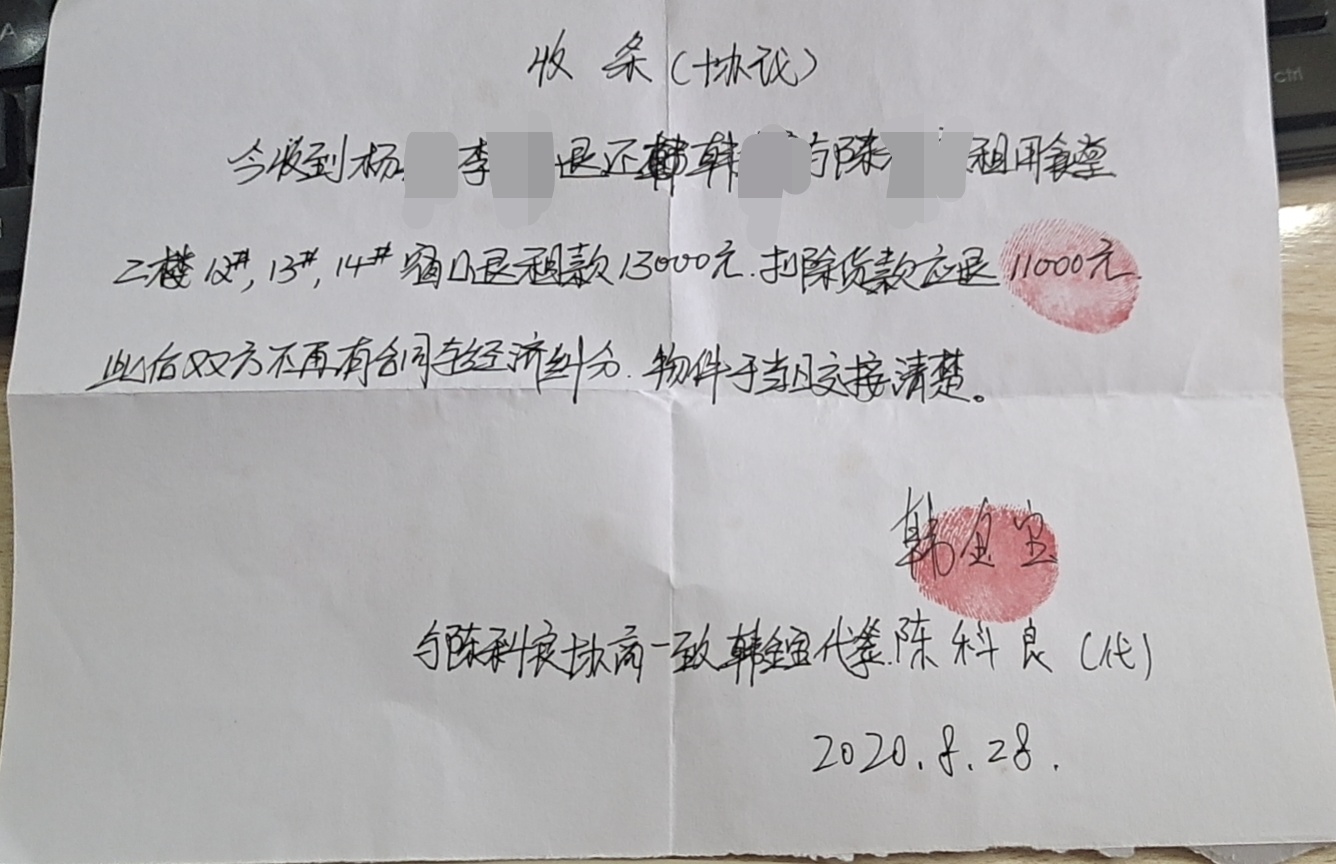 收条(协议)
今收到杨 李 退还韩韩 与陈 租用食堂
二楼12#,13#,14#窗口退租款13000元.扣除货款应退11000元.
此后双方不再有合同与经济纠分.物件于当日交接清楚。
韩金宝
与陈科良协商一致韩金宝代签.陈科良(代)
2020.8.28.
Ctrl
A